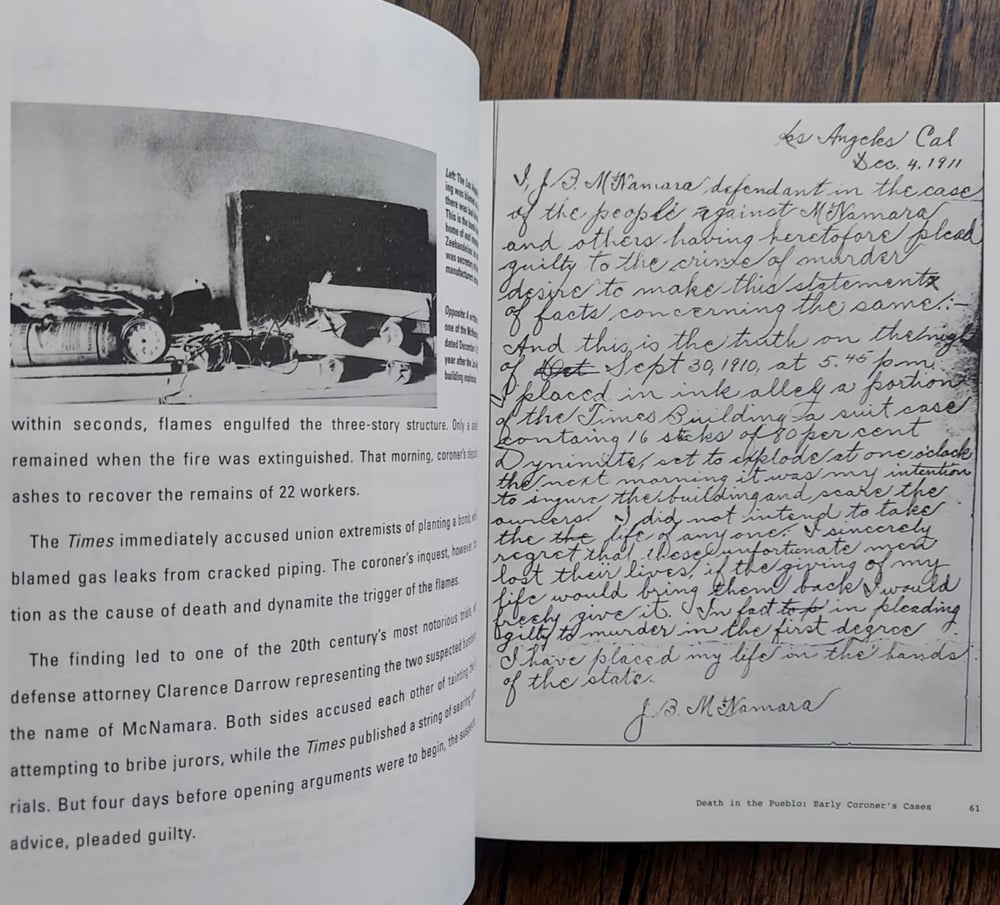 Left: The Los
ing was
there was
This is the
home of
was secretary
Opposite: A
one of the
dated December
year after the
building
within seconds, flames engulfed the three-story structure. Only a
remained when the fire was extinguished. That morning, coroner's
ashes to recover the remains of 22 workers.
The Times immediately accused union extremists of planting a bomb,
blamed gas leaks from cracked piping. The coroner's inquest, however,
tion as the cause of death and dynamite the trigger of the flames.
The finding led to one of the 20th century's most notorious trials,
defense attorney Clarence Darrow representing the two suspected
the name of McNamara. Both sides accused each other of tainting
attempting to bribe jurors, while the Times published a string of
rials. But four days before opening arguments were to begin, the
advice, pleaded guilty.
Los Angeles Cal
Dec. 4. 1911
I, J. B. McNamara defendant in the case
of the people against McNamara
and others having heretofore plead
guilty to the crime of murder
desire to make this statement
of facts concerning the same:-
And this is the truth on the night
of Oct Sept 30, 1910, at 5.45 p.m.
I placed in ink alley a portion
of the Times Building a suit case
containg 16 sticks of 80 per cent
Dynimite, set to explode at one o'clock
the next morning it was my intention
to injure the building and scare the
owners. I did not intend to take
the the life of anyone. I sincerely
regret that these unfortunate men
lost their lives, if the giving of my
life would bring them back I would
freely give it. In fact to p in pleading
gilty to murder in the first degree
I have placed my life in the hands
of the state.
J. B. McNamara
Death in the Pueblo: Early Coroner's Cases 61